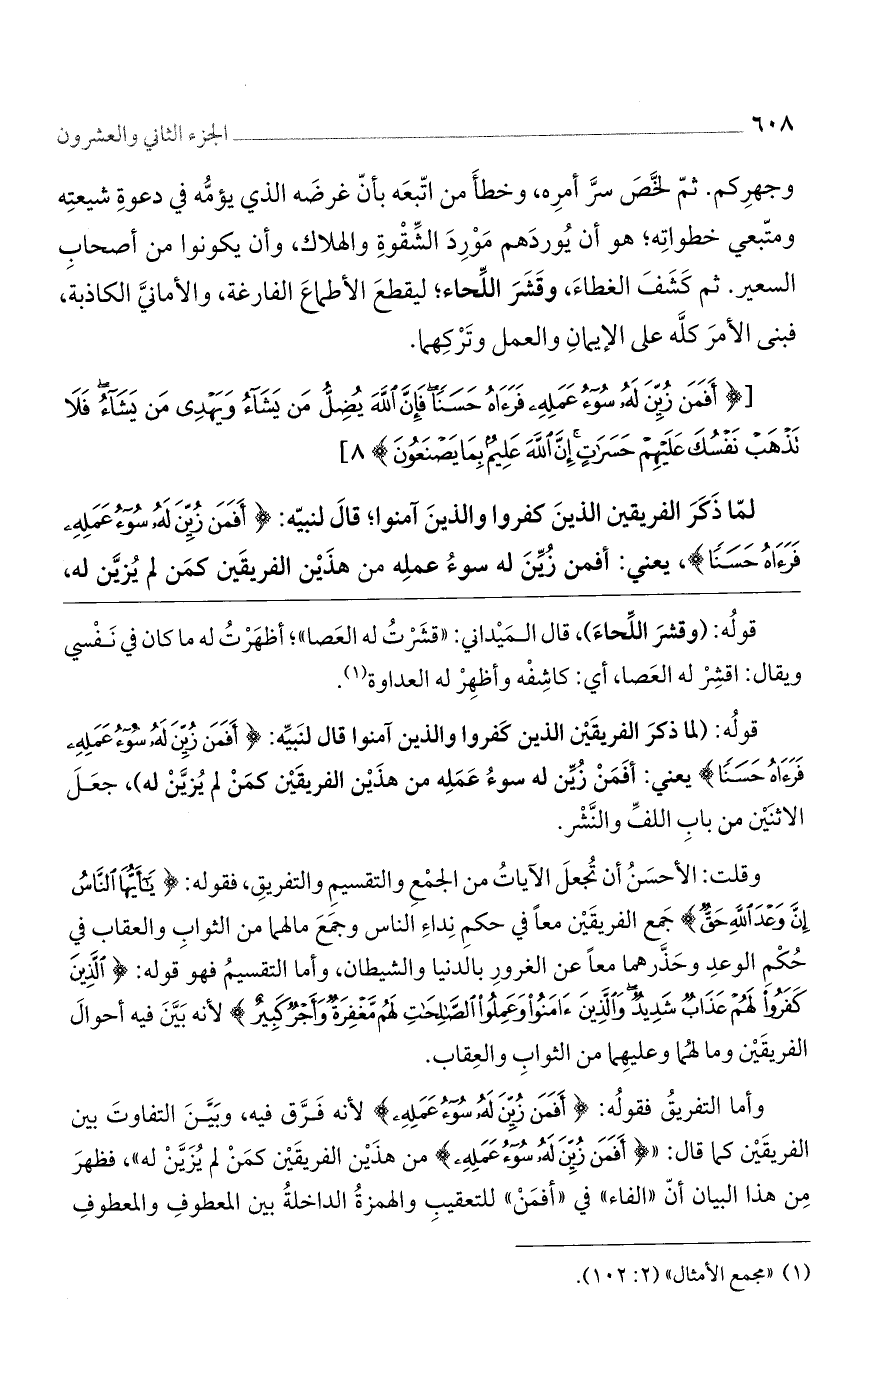 ٦٠٨ الجزء الثاني والعشرون
وجهرِكم. ثمّ لخَّصَ سرَّ أمرِه، وخطأَ من اتّبعَه بأنّ غرضَه الذي يؤمُّه في دعوةِ شيعتِه
ومتّبعي خطواتِه؛ هو أن يُوردَهم مَوْرِدَ الشِّقْوةِ والهلاك، وأن يكونوا من أصحابِ
السعير. ثم كَشَفَ الغطاءَ، وقَشَرَ اللِّحاء؛ ليقطعَ الأطماعَ الفارغة، والأمانيَّ الكاذبة،
فبنى الأمرَ كلَّه على الإيمانِ والعمل وتَرْكِهما.
[﴿ أَفَمَن زُيِّنَ لَهُۥ سُوٓءُ عَمَلِهِۦ فَرَءَاهُ حَسَنًا ۖ فَإِنَّ ٱللَّهَ يُضِلُّ مَن يَشَآءُ وَيَهْدِى مَن يَشَآءُ ۖ فَلَا
نَذْهَبْ نَفْسُكَ عَلَيْهِمْ حَسَرَٰتٍ ۚ إِنَّ ٱللَّهَ عَلِيمٌۢ بِمَا يَصْنَعُونَ ﴾ ٨]
لمّا ذَكَرَ الفريقين الذينَ كفروا والذينَ آمنوا؛ قالَ لنبيّه: ﴿ أَفَمَن زُيِّنَ لَهُۥ سُوٓءُ عَمَلِهِۦ
فَرَءَاهُ حَسَنًا ﴾، يعني: أفمن زُيِّنَ له سوءُ عملِه من هذَيْن الفريقَين كمَن لم يُزيَّن له،
قولُه: (وقشرَ اللِّحاءَ)، قال الـمَيْداني: «قشَرْتُ له العَصا»؛ أظهَرْتُ له ما كان في نَـفْسي
ويقال: اقشِرْ له العَصا، أي: كاشِفْه وأظهِرْ له العداوة(١).
قولُه: (لما ذكرَ الفريقَيْن الذين كَفروا والذين آمنوا قال لنَبيِّه: ﴿ أَفَمَن زُيِّنَ لَهُۥ سُوٓءُ عَمَلِهِۦ
فَرَءَاهُ حَسَنًا ﴾ يعني: أفَمَنْ زُيِّن له سوءُ عَمَلِه من هذَيْن الفريقَيْن كمَنْ لم يُزيَّنْ له)، جعـلَ
الاثنَيْن من بابِ اللفِّ والنَّشْر.
وقلت: الأحسَنُ أن تُجعلَ الآياتُ من الجمْعِ والتقسيمِ والتفريقِ، فقوله: ﴿ يَٰٓأَيُّهَا ٱلنَّاسُ
إِنَّ وَعْدَ ٱللَّهِ حَقٌّ ﴾ جَمع الفريقَيْن معاً في حكمِ نِداءِ الناس وجمَعَ مالهما من الثوابِ والعقاب في
حُكْمِ الوعدِ وحَذَّرهما معاً عن الغرورِ بالدنيا والشيطان، وأما التقسيمُ فهو قوله: ﴿ ٱلَّذِينَ
كَفَرُوا۟ لَهُمْ عَذَابٌ شَدِيدٌ ۖ وَٱلَّذِينَ ءَامَنُوا۟ وَعَمِلُوا۟ ٱلصَّٰلِحَٰتِ لَهُم مَّغْفِرَةٌ وَأَجْرٌ كَبِيرٌ ﴾ لأنه بَيَّنَ فيه أحوالَ
الفريقَيْن وما لهُما وعليهِما من الثوابِ والعِقاب.
وأما التفريقُ فقولُه: ﴿ أَفَمَن زُيِّنَ لَهُۥ سُوٓءُ عَمَلِهِۦ ﴾ لأنه فَـرَّق فيه، وبَيَّـنَ التفاوتَ بين
الفريقَيْن كما قال: «﴿ أَفَمَن زُيِّنَ لَهُۥ سُوٓءُ عَمَلِهِۦ ﴾ من هذَيْن الفريقَيْن كمَنْ لم يُزَيَّنْ له»، فظهرَ
مِن هذا البيان أنّ «الفاء» في «أفمَنْ» للتعقيبِ والهمزةُ الداخلةُ بين المعطوفِ والمعطوفِ
(١) «مجمع الأمثال» (٢: ١٠٢).